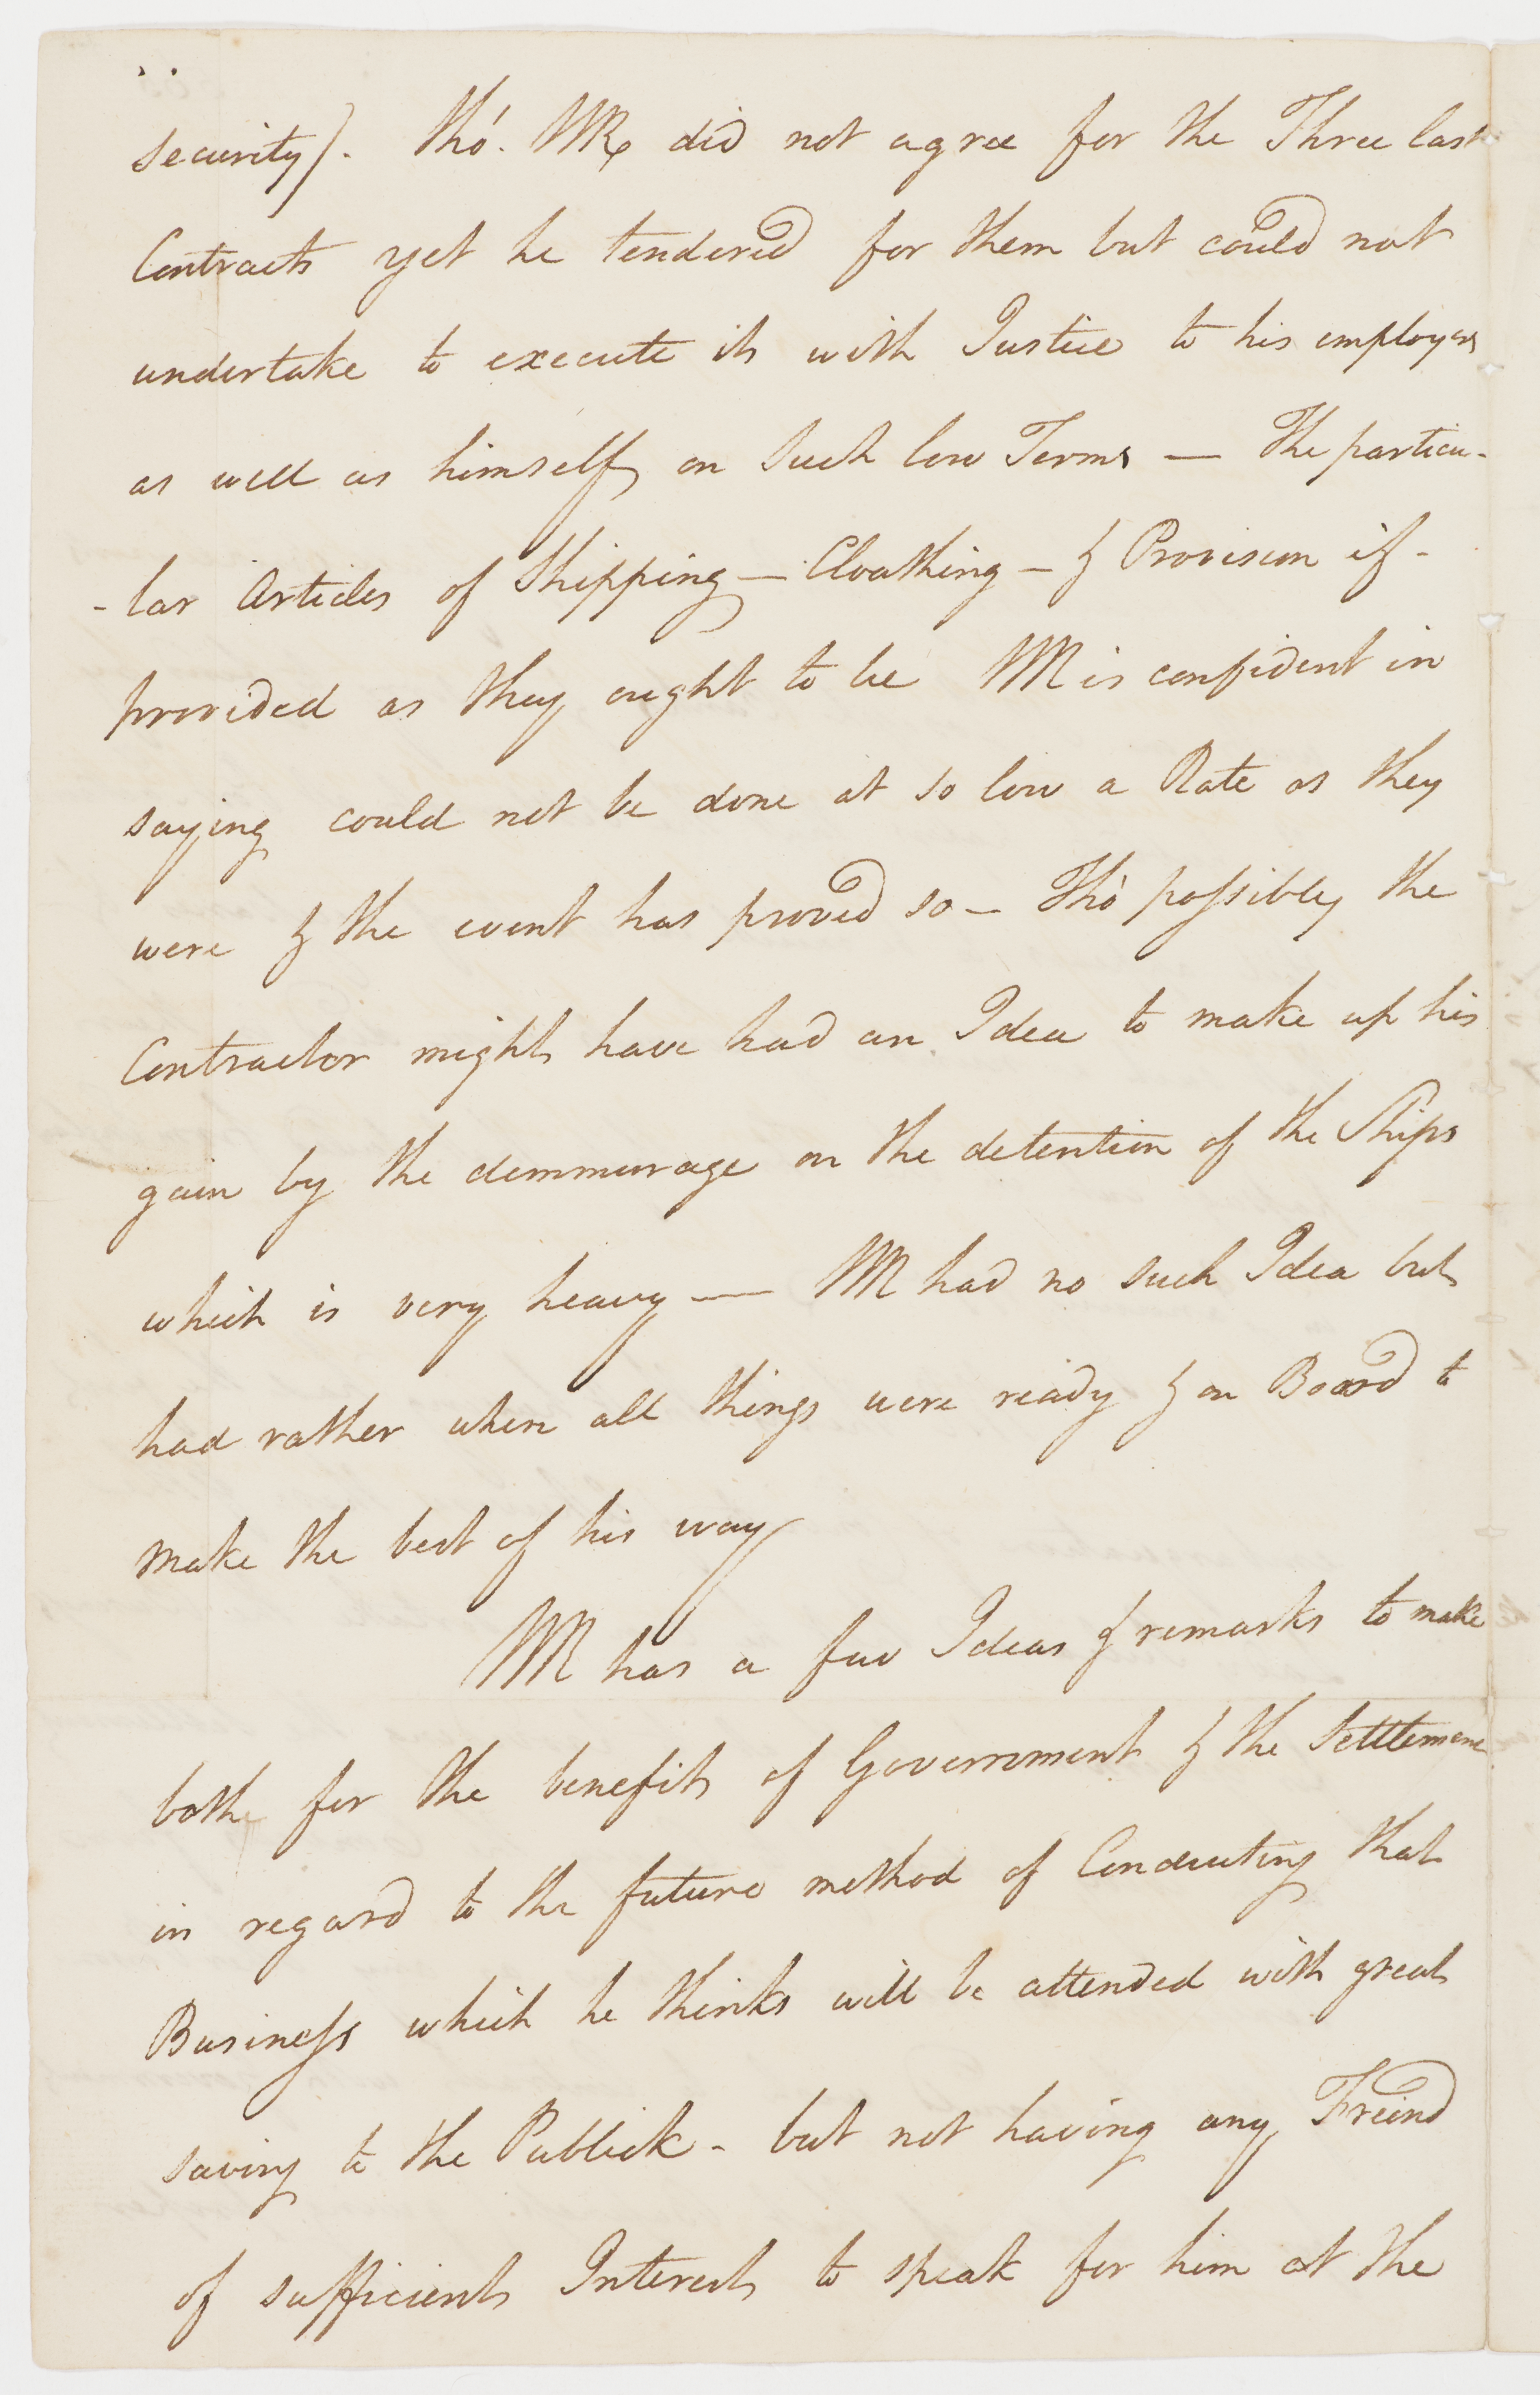 security). tho'. WR did not agree for the Three last
Contracts yet he tendered for them but could not
undertake to execute it with Justice to his employers
as well as himself on such low Terms — The particu-
-lar Articles of Shipping — Cloathing — & Provision if -
provided as they ought to be WR is confident in
saying could not be done at so low a Rate as they
were & the event has proved so — Tho' possibly the
Contractor might have had an Idea to make up his
gain by the demmurage on the detention of the Ships
which is very heavy — WR had no such Idea but
had rather when all things were ready & on Board to
make the best of his way
WR has a few Ideas & remarks to make
both for the benefit of Government & the Settlement
in regard to the future method of Conducting that
Business which he thinks will be attended with great
saving to the Publick - but not having any Freind
of sufficient Interest to speak for him at the